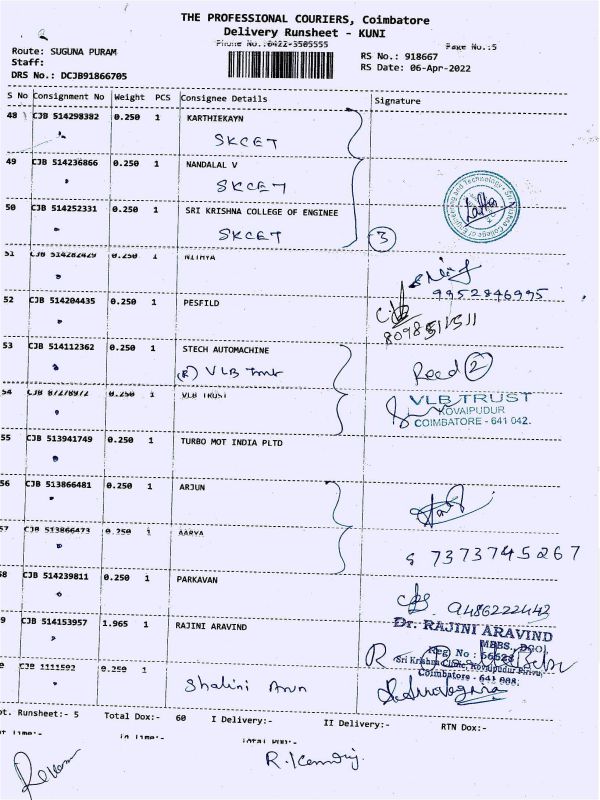 THE PROFESSIONAL COURIERS, Coimbatore
Delivery Runsheet - KUNI
Phone No.:0422-3505555
Page No.:5
Route: SUGUNA PURAM
RS No.: 918667
Staff:
RS Date: 06-Apr-2022
DRS No.: DCJB91866705
S No Consignment No Weight PCS Consignee Details Signature
48 CJB 514298382 0.250 1 KARTHIEKAYN
SKCET
49 CJB 514236866 0.250 1 NANDALAL V
SKCET
50 CJB 514252331 0.250 1 SRI KRISHNA COLLEGE OF ENGINEE
SKCET
3
51 CJB 514282429 0.250 1 NITHYA
9952846995
52 CJB 514204435 0.250 1 PESFILD
8098511511
53 CJB 514112362 0.250 1 STECH AUTOMACHINE
VLB Trust
Recd 2
54 CJB 87278972 0.250 1 VLB TRUST
VLB TRUST
KOVAIPUDUR
COIMBATORE - 641 042.
55 CJB 513941749 0.250 1 TURBO MOT INDIA PLTD
56 CJB 513866481 0.250 1 ARJUN
57 CJB 513866473 0.250 1 AARYA
7373745267
58 CJB 514239811 0.250 1 PARKAVAN
9486222443
9 CJB 514153957 1.965 1 RAJINI ARAVIND
Dr. RAJINI ARAVIND
MBBS., DGO)
Reg No : 66628
Sri Krishna Clinic, Kovaipudur Pirivu,
Coimbatore - 641 008.
CJB 1111592 0.250 1
Shalini Arun
pt. Runsheet:- 5 Total Dox:- 60 I Delivery:- II Delivery:- RTN Dox:-
In Time:-